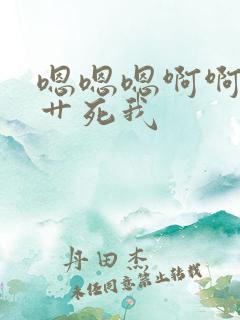 嗯嗯嗯啊啊
艹死我
丹田杰
未经同意禁止转载